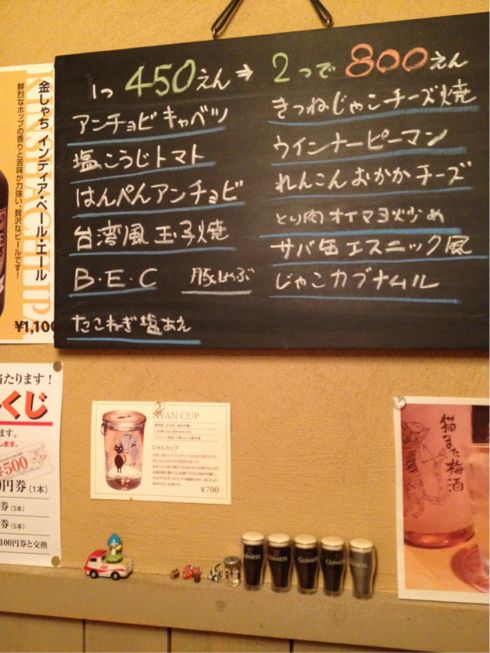 1つ 450えん⇒ 2つで 800えん
アンチョビキャベツ
塩こうじトマト
はんぺんアンチョビ
台湾風玉子焼
B・E・C 豚しゃぶ
たこねぎ塩あえ
きつねじゃこチーズ焼
ウインナーピーマン
れんこんおかかチーズ
とり肉オイマヨ炒め
サバ缶エスニック風
じゃこカブナムル
金しゃち インディア・ペール・エール
鮮烈なホップの香りと苦味が力強い、贅沢なビールです!
¥1,100
当たります!
くじ
ます。
¥500
0円券(1本)
券(3本)
券(5本)
100円券と交換
NYAN CUP
にゃんカップ
¥700
猫また梅酒
GUINNESS
GUINNESS
GUINNESS
GUINNESS
GUINNESS